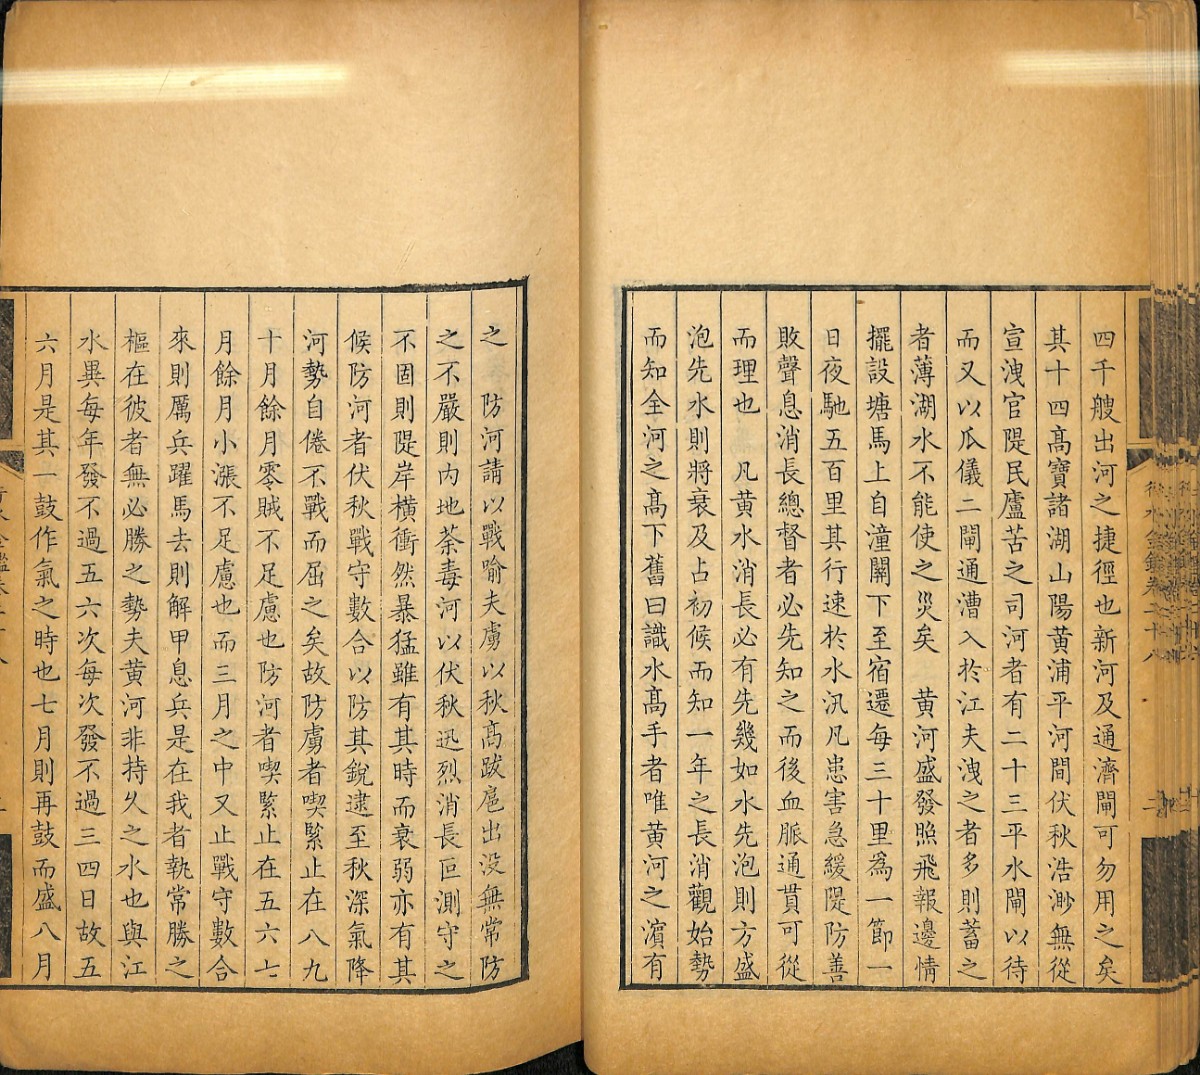 四千艘出河之捷徑也新河及通濟閘可勿用之矣
其十四高寶諸湖山陽黃浦平河間伏秋浩渺無從
宣洩官隄民廬苦之司河者有二十三平水閘以待
而又以瓜儀二閘通漕入於江夫洩之者多則蓄之
者薄湖水不能使之災矣　黃河盛發照飛報邊情
擺設塘馬上自潼關下至宿遷每三十里爲一節一
日夜馳五百里其行速於水汛凡患害急緩隄防善
敗聲息消長總督者必先知之而後血脈通貫可從
而理也　凡黃水消長必有先幾如水先泡則方盛
泡先水則將衰及占初候而知一年之長消觀始勢
而知全河之高下舊曰識水高手者唯黃河之濵有
之　防河請以戰喻夫虜以秋高跋扈出没無常防
之不嚴則内地荼毒河以伏秋迅烈消長叵測守之
不固則隄岸橫衝然暴猛雖有其時而衰弱亦有其
候防河者伏秋戰守數合以防其銳逮至秋深氣降
河勢自倦不戰而屈之矣故防虜者喫緊止在八九
十月餘月零賊不足慮也防河者喫緊止在五六七
月餘月小漲不足慮也而三月之中又止戰守數合
來則厲兵躍馬去則解甲息兵是在我者執常勝之
樞在彼者無必勝之勢夫黃河非持久之水也與江
水異每年發不過五六次每次發不過三四日故五
六月是其一鼓作氣之時也七月則再鼓而盛八月